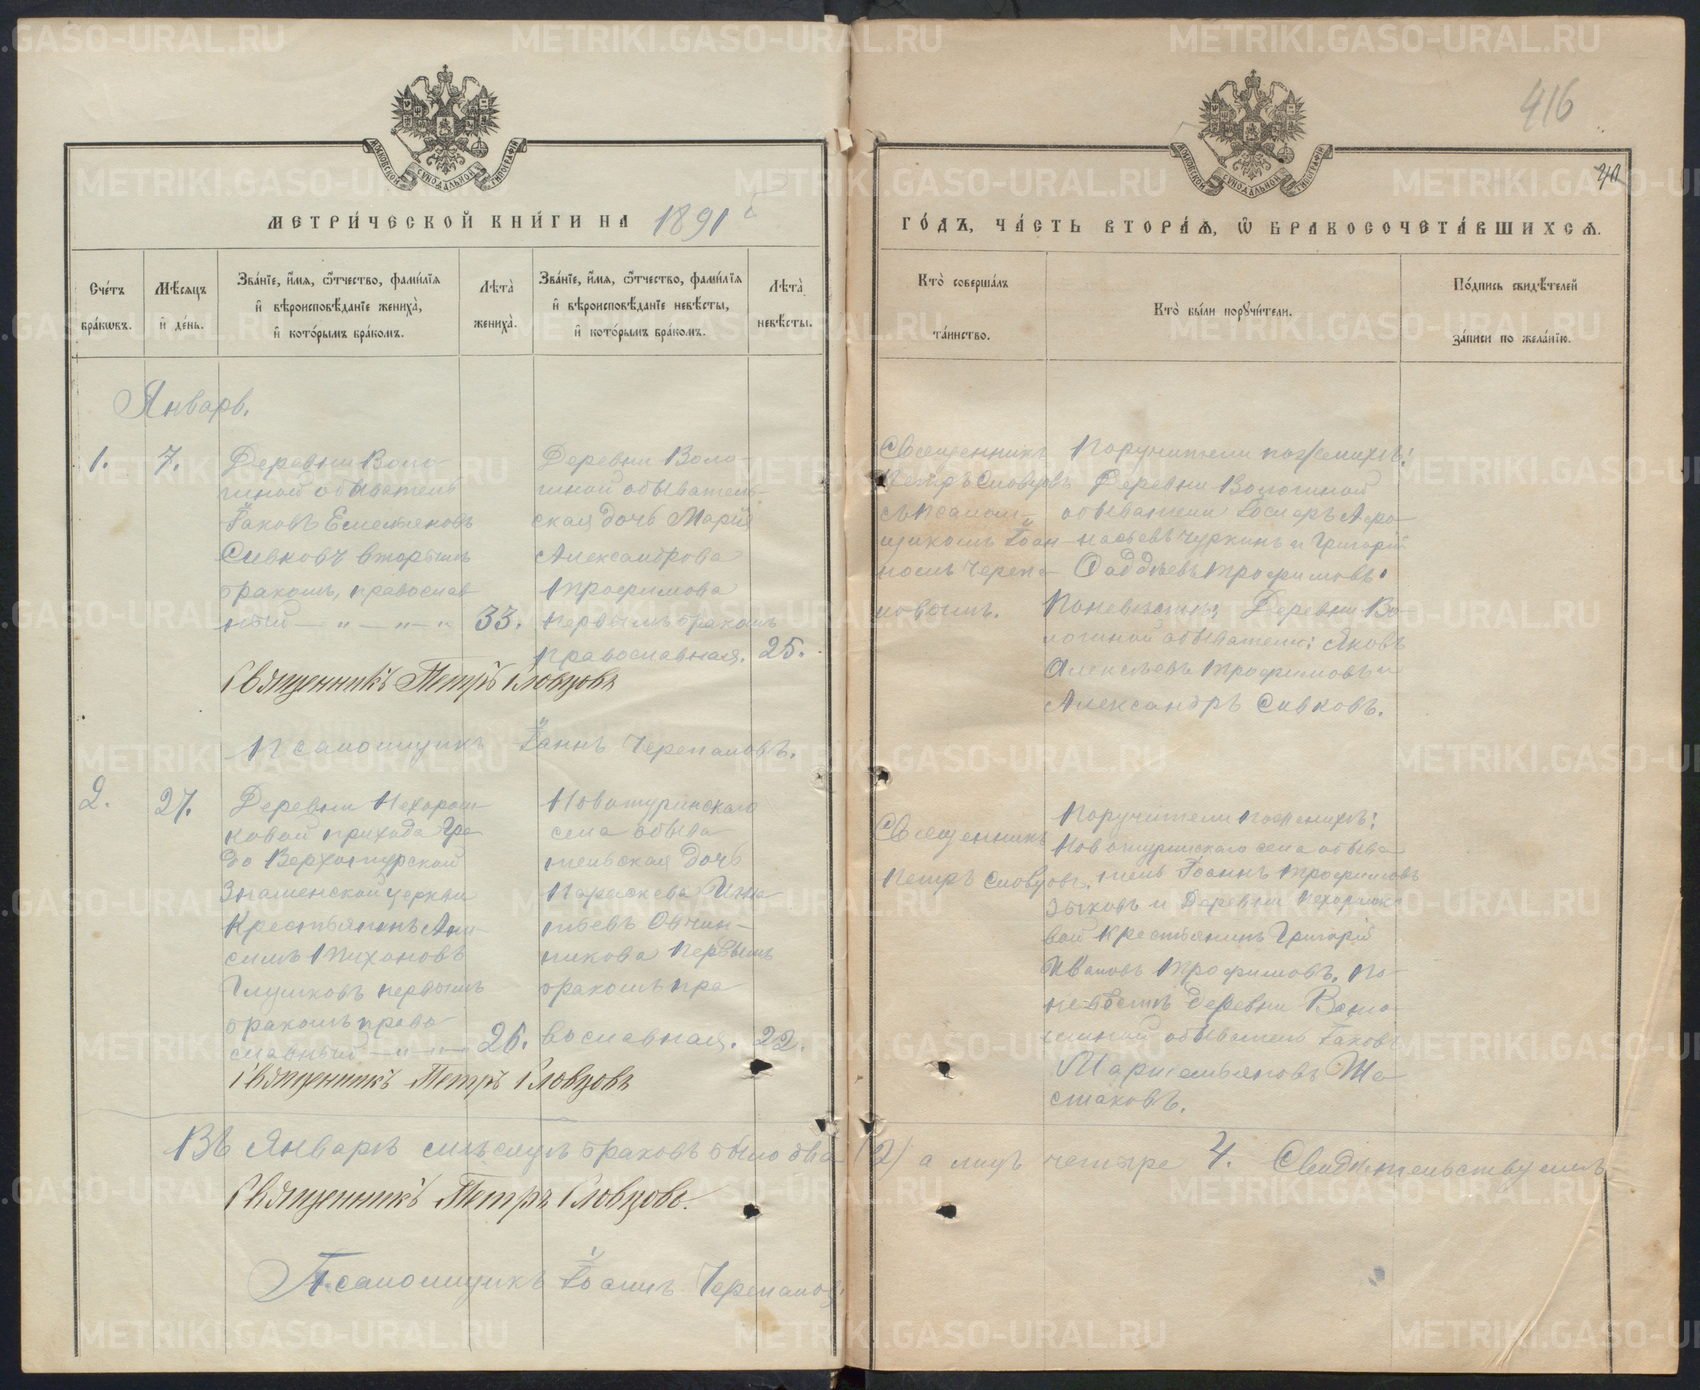 416
40
МЕТРИЧЕСКОЙ КНИГИ НА 1891
ГОДЪ, ЧАСТЬ ВТОРАЯ, Ѡ БРАКОСОЧЕТАВШИХСЯ.
Счетъ браковъ.
Мѣсяцъ и день.
Званіе, имя, ѿчество, фамилія и вѣроисповѣданіе жениха, и которымъ бракомъ.
Лѣта жениха.
Званіе, имя, ѿчество, фамилія и вѣроисповѣданіе невѣсты, и которымъ бракомъ.
Лѣта невѣсты.
Кто совершалъ таинство.
Кто были поручители.
Подпись свидѣтелей записи по желанію.
Январь.
1.
7.
Деревни Воло-
гиной обыватель
Іаковъ Емельяновъ
Сивковъ вторымъ
бракомъ, православ
ный
33.
Деревни Воло-
гиной обыватель-
ская дочь Марія
Александрова
Трофимова
первымъ бракомъ
православная.
25.
Священникъ
Петръ Словцовъ
съ псалом-
щикомъ Іоан-
номъ Черепа-
новымъ.
Поручители по женихѣ:
Деревни Вологиной
обыватели
Чуркинъ и Григорій
Фаддѣевъ Трофимовъ.
По невѣстѣ Деревни Во-
логиной обыватели: Яковъ
Алексѣевъ Трофимовъ и
Александръ Сивковъ.
Священникъ Петръ Словцовъ
Псаломщикъ Іоаннъ Черепановъ.
2.
27.
Деревни Нехорош-
ковой прихода Гра-
до Верхотурской
Знаменской церкви
Крестьянинъ Ани-
симъ Тихоновъ
Глушковъ первымъ
бракомъ право-
славный
26.
Новотуринскаго
села обыва
тельская дочь
Параскева Игна
тьевъ Овчин-
никова первымъ
бракомъ пра
вославная.
22.
Священникъ
Петръ Словцовъ.
Поручители по женихѣ:
Новотуринскаго села обыва
тель Іоаннъ Трофимовъ
Зыковъ и Деревни Нехорошко
вой крестьянинъ Григорій
Ивановъ Трофимовъ. По
невѣстѣ деревни Воло-
гиной обыватель Іаковъ
Священникъ Петръ Словцовъ
Въ Январѣ мѣсяцѣ браковъ было два
2) а лицъ четыре 4. Свидѣтельствуемъ
Священникъ Петръ Словцовъ.
Псаломщикъ Іоаннъ Черепановъ
METRIKI.GASO-URAL.RU